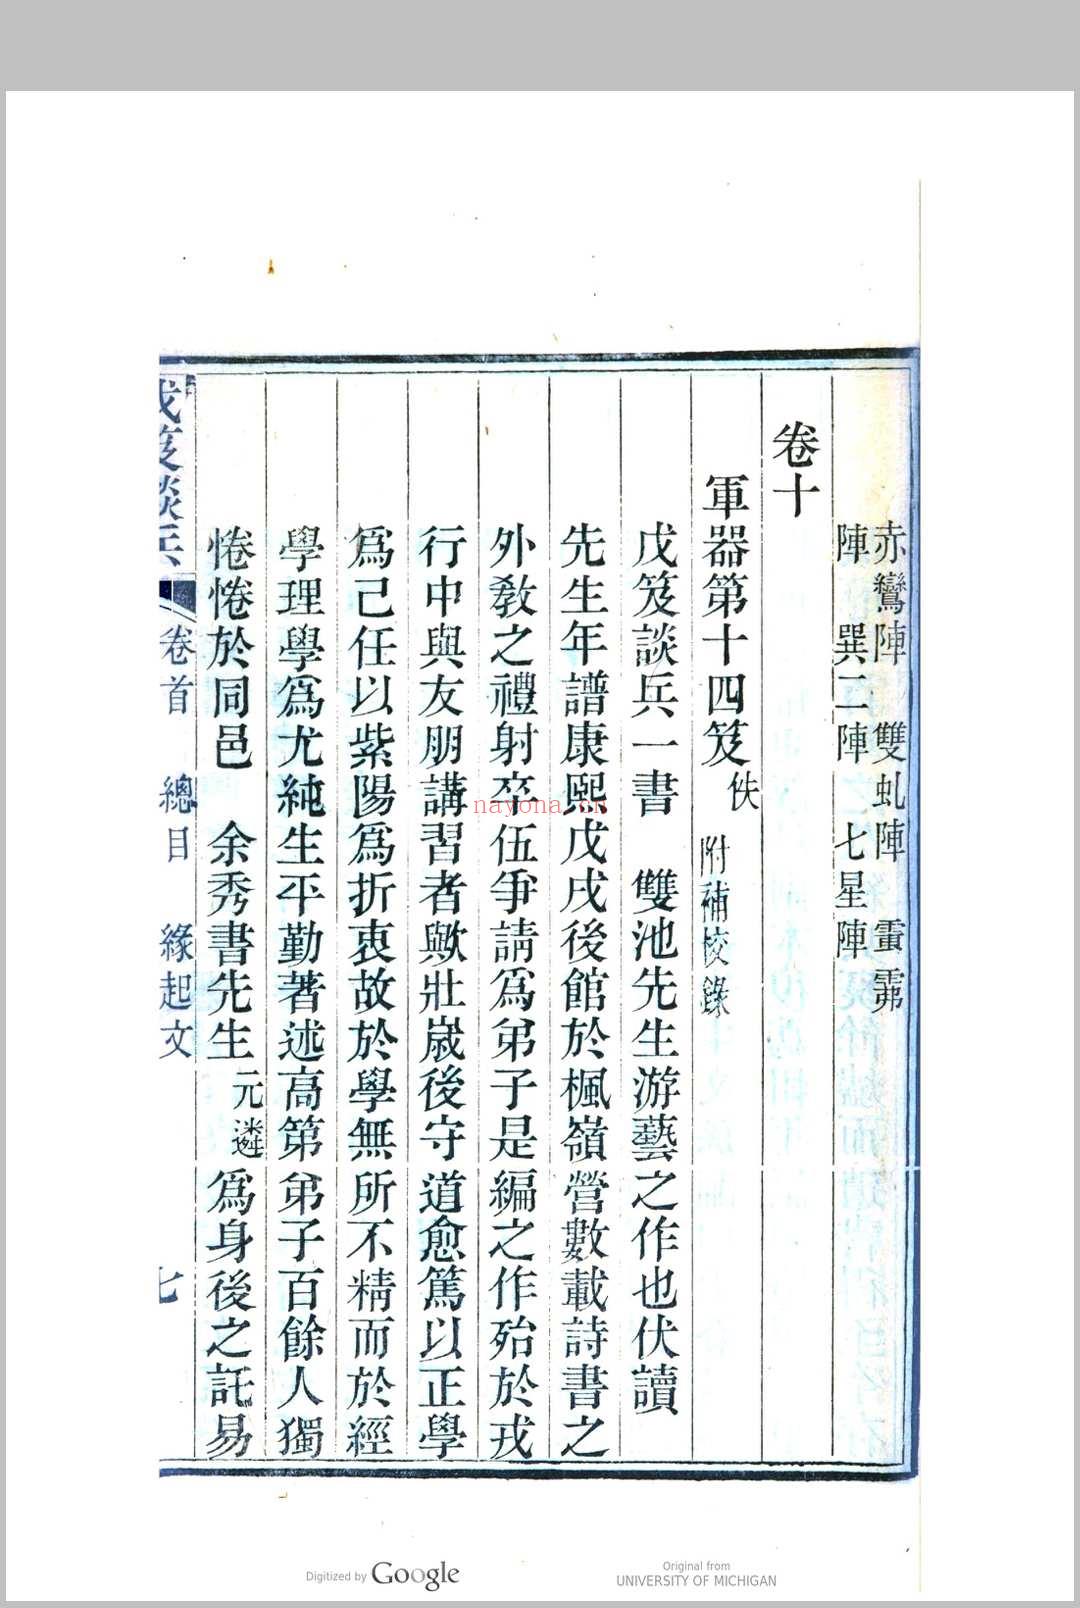 赤鸞陣　雙虬陣　雷霈
陣　巽二陣　七星陣
卷十
軍器第十四笈佚　附補校錄
戊笈談兵一書　雙池先生游藝之作也伏讀
先生年譜康熙戊戌後館於楓嶺營數載詩書之
外教之禮射卒伍爭請爲弟子是編之作殆於戎
行中與友朋講習者歟壯歲後守道愈篤以正學
爲己任以紫陽爲折衷故於學無所不精而於經
學理學爲尤純生平勤著述高第弟子百餘人獨
惓惓於同邑　余秀書先生元遴爲身後之託易
戊笈談兵　卷首　總目　緣起文　七
nayona.cn
Digitized by Google
Original from
UNIVERSITY OF MICHIGAN